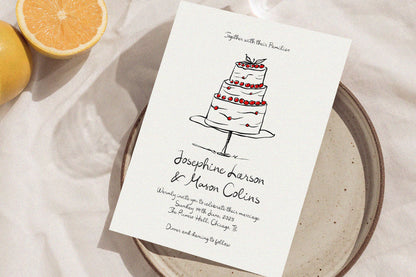 Together with their Families
Josephine Larson
& Mason Colins
Warmly invite you to celebrate their marriage
Sunday 14th June, 2025
The Rivers Hall, Chicago IL
Dinner and dancing to follow